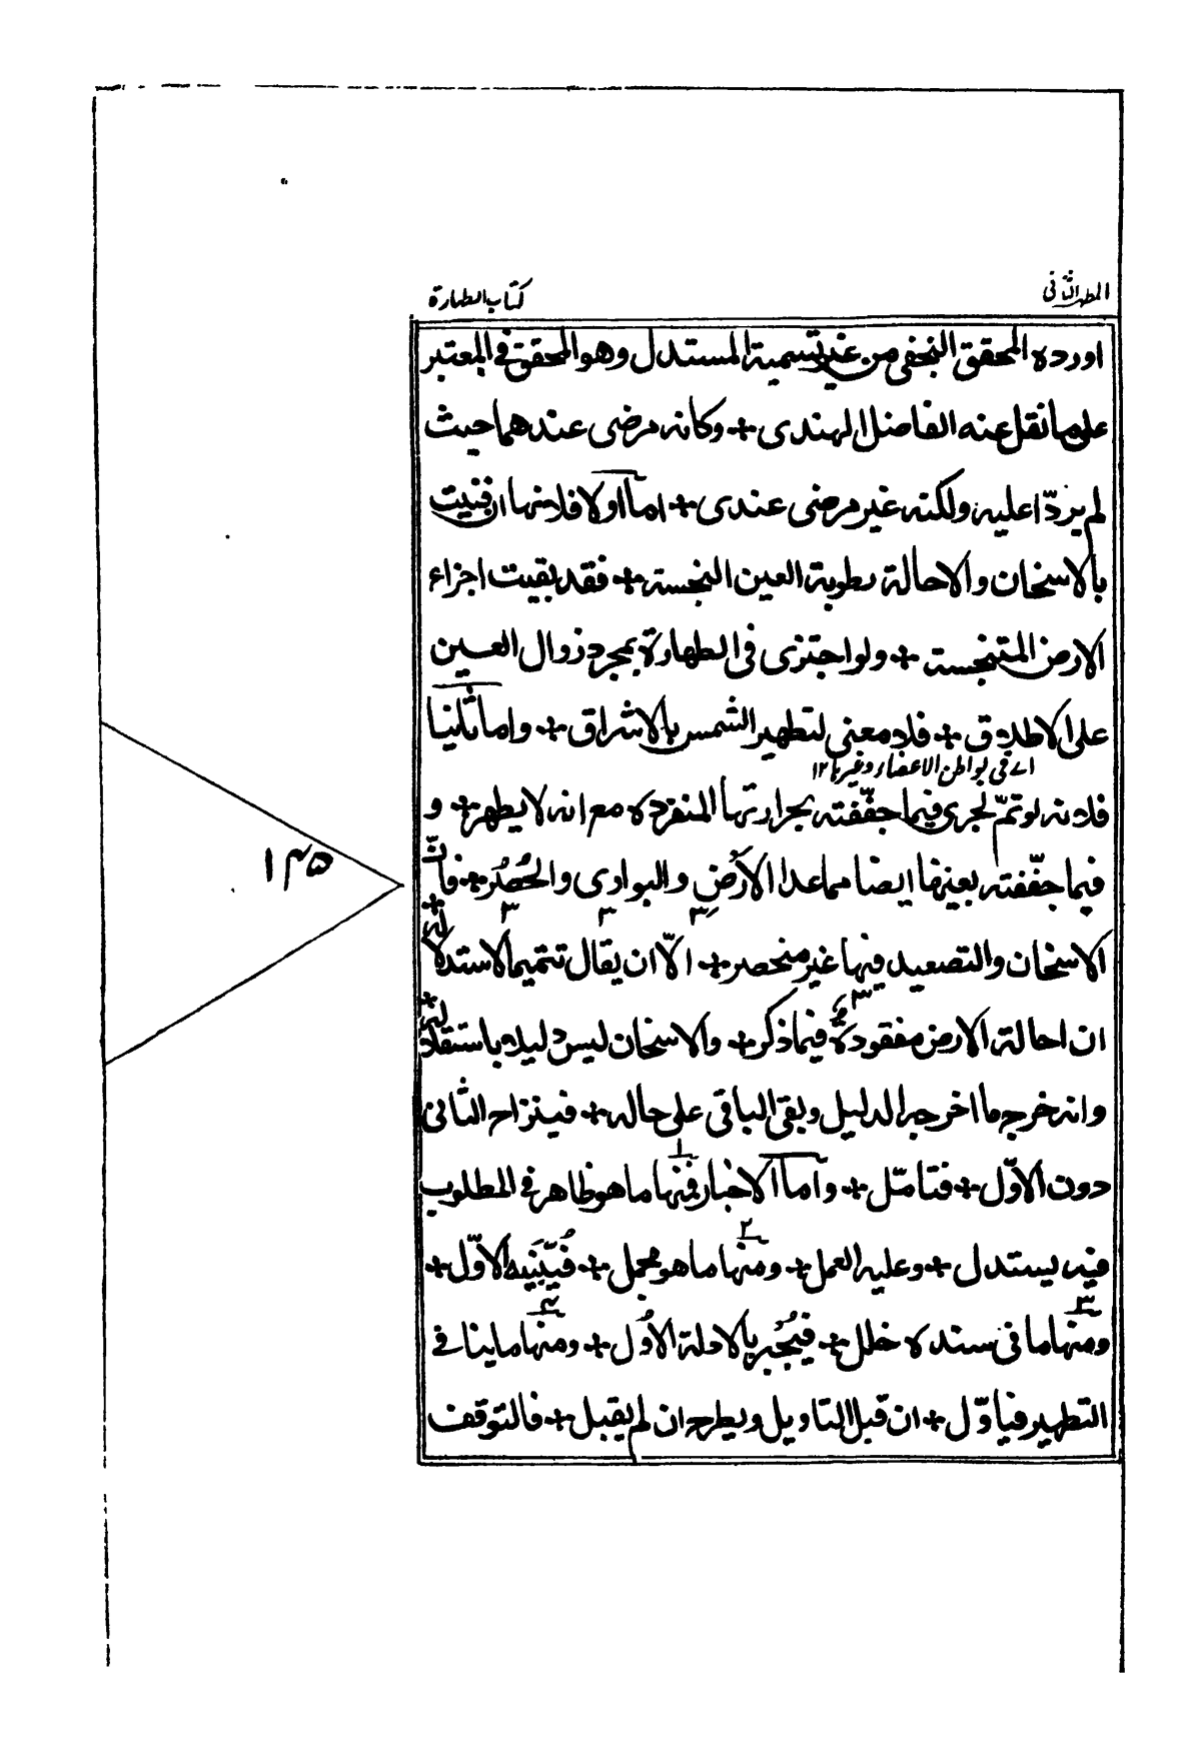 المطهر الثانی
کتاب الطهارة
اورده المحقق النجفی من غیر تسمیة المستدل وهو المحقق فی المعتبر
علی ما نقل عنه الفاضل الهندی + وکانه مرضی عندهما حیث
لم یردّا علیه ولکنه غیر مرضی عندی + اما اولا فلانها ان فنیت
بالاسخان والاحالة رطوبة العین النجسة + فقد بقیت اجزاء
الارض المتنجسة + ولو اجتزی فی الطهارة بمجرد زوال العین
علی الاطلاق + فلا معنی لتطهیر الشمس بالاشراق + واما ثانیا
اے فی بواطن الاعضاء وغیرها ۱۲
فلانه لو تمّ لجری فیما جفّفته بحرارتها المنفرده مع انه لا یطهر + و
فیما جفّفته بعینها ایضا مما عدا الأرضِ والبواری والحُصُر + فانّ
۳ ۳ ۳
الاسخان والتصعید فیها غیر منحصر + الّا ان یقال تتمیما لاستدلاله +
ان احالة الارض مفقودةٌ فیما ذکر + والاسخان لیس دلیلا باستقلاله +
۳
وانه خرج ما اخرجه الدلیل وبقی الباقی علی حاله + فینزاح الثانی
دون الاوّل + فتامّل + واما الاخبار فمنها ما هو ظاهر فی المطلوب
۱
فبه یستدل + وعلیه العمل + ومنها ما هو مجمل + فیُبَیّنه الاوّل +
۲
ومنها ما فی سنده خلل + فیُجبَر بالادلة الاُوَل + ومنها ما ینافی
۳ ۴
التطهیر فیاوّل + ان قبل التاویل ویطرح ان لم یقبل + فالتوقف
۱۴۵